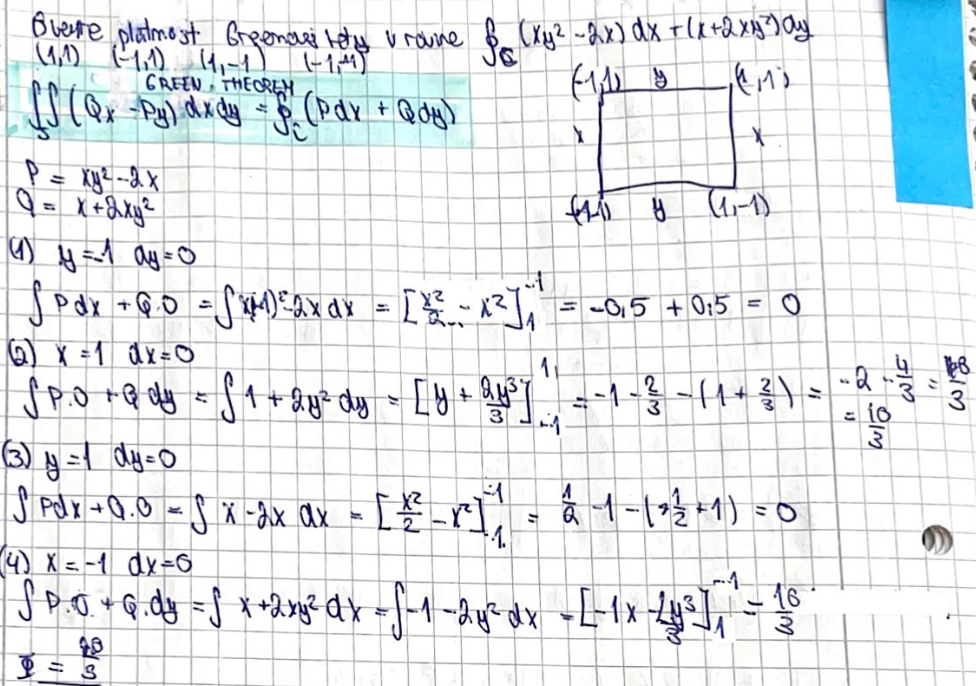 Overte platnost Greenovej vety v rovine ∮_C (xy² - 2x) dx + (x + 2xy²) dy
(1,1) (-1,1) (1,-1) (-1,-1)
GREEN. THEOREM
∬_S (Qx - Py) dx dy = ∮_C (P dx + Q dy)
(-1,1) y (1,1)
x x
(-1,-1) y (1,-1)
P = xy² - 2x
Q = x + 2xy²
(1) y = -1 dy = 0
∫ P dx + Q.0 = ∫ x(-1)² - 2x dx = [x²/2 - x²]₁⁻¹ = -0,5 + 0,5 = 0
(2) x = 1 dx = 0
∫ P.0 + Q dy = ∫ 1 + 2y² dy = [y + 2y³/3]₋₁¹ = -1 - 2/3 - (1 + 2/3) = -2 - 4/3 =
= 10/3
(3) y = 1 dy = 0
∫ P dx + Q.0 = ∫ x - 2x dx = [x²/2 - x²]₁⁻¹ = 1/2 - 1 - (-1/2 + 1) = 0
(4) x = -1 dx = 0
∫ P.0 + Q.dy = ∫ x + 2xy² dx = ∫ -1 - 2y² dx = [-1x - 2y³/3]₁⁻¹ = 10/3